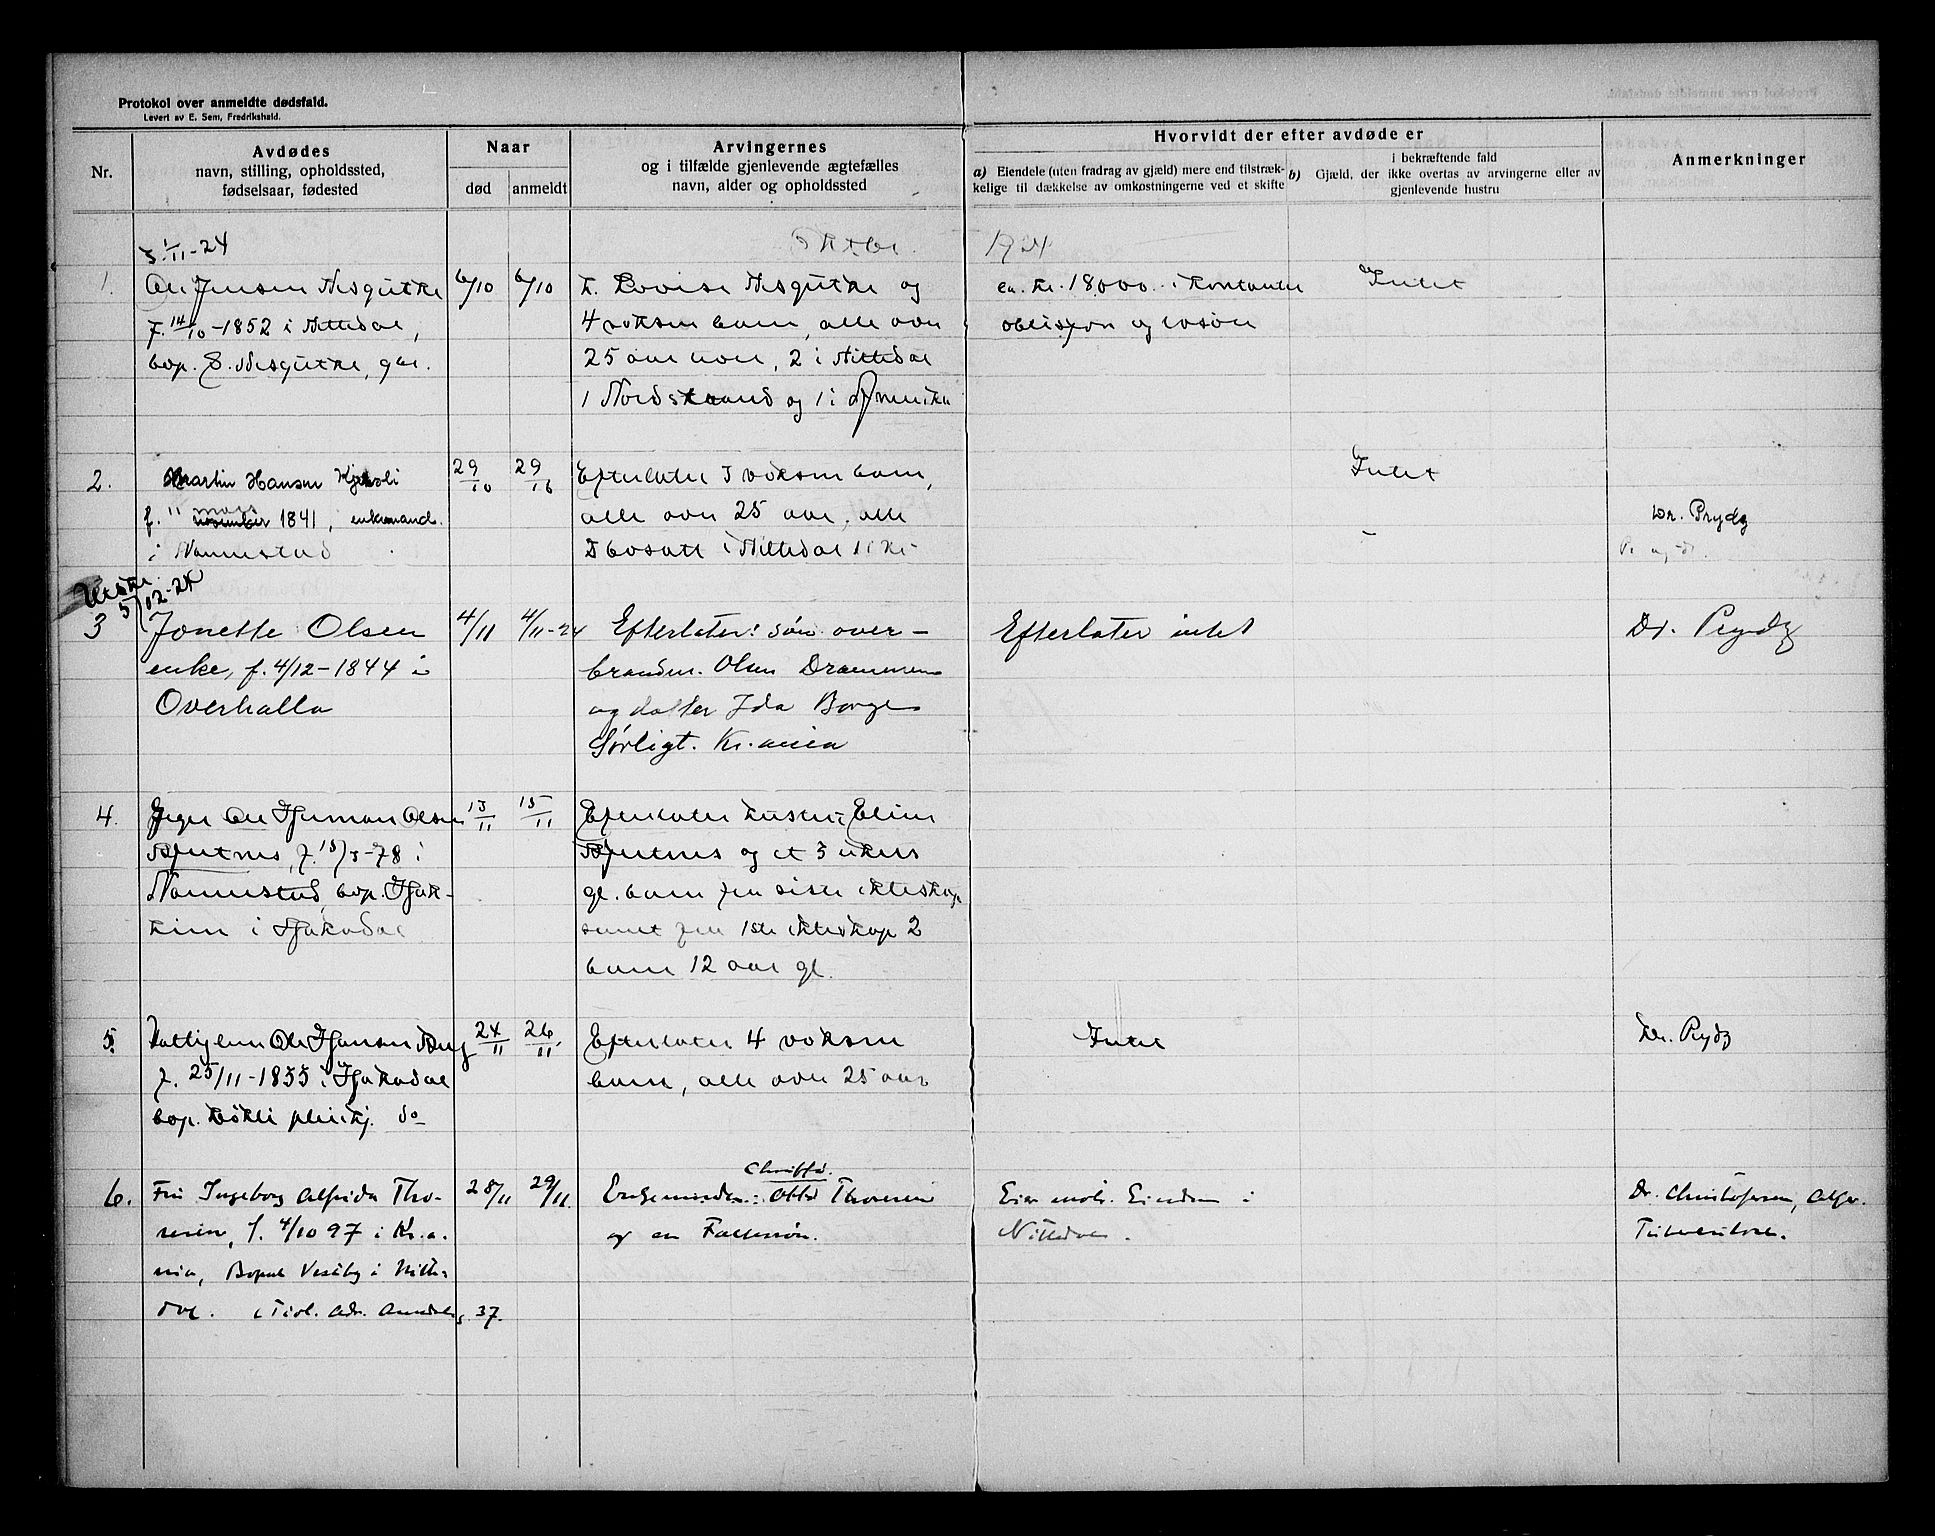 Protokol over anmeldte dødsfald.
Levert av E. Sem, Fredrikshald.
Nr.
Avdødes
navn, stilling, opholdssted,
fødselsaar, fødested
Naar
død
anmeldt
Arvingernes
og i tilfælde gjenlevende ægtefælles
navn, alder og opholdssted
Hvorvidt der efter avdøde er
a) Eiendele (uten fradrag av gjæld) mere end tilstræk-
kelige til dækkelse av omkostningerne ved et skifte
i bekræftende fald
b) Gjæld, der ikke overtas av arvingerne eller av
gjenlevende hustru
Anmerkninger
Oktbr. 1924
1.
Ole Jensen Nesgutke
f. 14/10-1852 i Nittedal,
bop. Nesgutke, gaar.
6/10
6/10
h. Lovise Nesgutke og
4 voksne barn, alle over
25 aar, 2 i Nittedal
1 Nordstrand og 1 i Amerika
ca. kr. 18000 i kontanter
obligasjon og løsøre
Intet
2.
Martin Hansen
f. 11 mars 1841, enkemand.
i Nannestad
29/10
29/10
Efterlater 3 voksne barn,
alle over 25 aar, alle
bosatt i Nittedal
Intet
-
Dr. Prydz
5/12-24
3
Jonette Olsen
enke, f. 4/12-1844 i
Overhalla
4/11
4/11-24
Efterlater: søn over-
brandm. Olsen Drammen
og datter Ida Borge
Sørligt. Kr.ania
Efterlater intet
Dr. Prydz
4.
Ole Hjerman Olsen
f. 15/3-78 i
Nannestad, bop.
i Hakadal
13/11
15/11
Efterlater hustru Eline
og et 3 ukers
gl. barn fra siste ekteskap
samt fra 1ste ekteskap 2
barn 12 aar gl.
5.
Fattiglem Ole Hansen
f. 25/11-1855 i Hakadal
bop. pleiehj. do
24/11
26/11
Efterlater 4 voksne
barn, alle over 25 aar
Intet
Dr. Prydz
6.
Fru Ingeborg Alfrida Tho-
resen, f. 4/10 97 i Kr.a.
nia, Bopæl Vestby i Nitte-
dal. 37.
28/11
29/11.
Christfd.
Enkemanden: Otto Thoresen
og en
Eier Eiendom i
Nittedal.
Dr. Christofersen,
Tuberkulose.